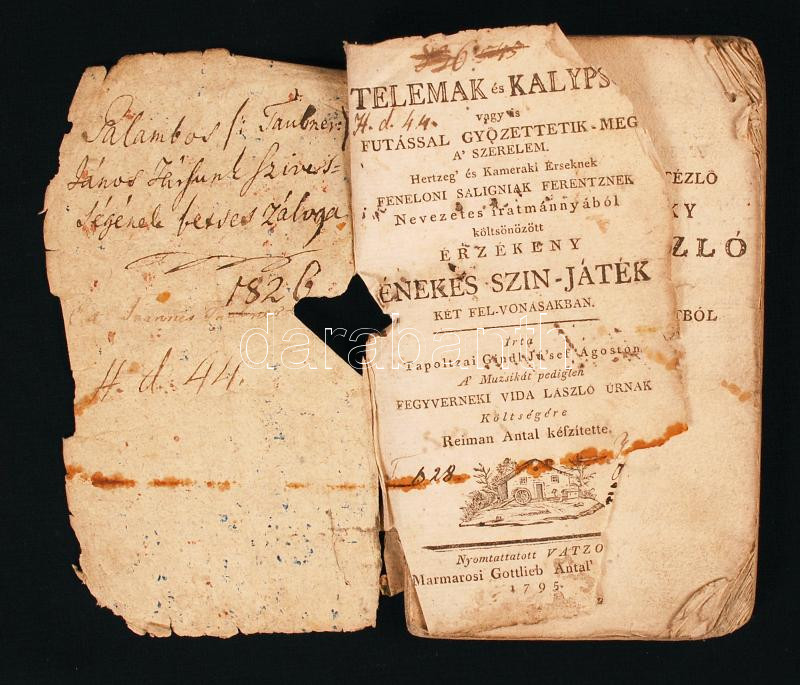 Palambos /: Taubner:/
János Társunk szives-
ségének betses Záloga
1826
H. d. 44.
TELEMAK és KALYPS
vagy is
H. d. 44.
FUTÁSSAL GYÖZETTETIK-MEG
A' SZERELEM.
Hertzeg' és Kameraki Érseknek
FENELONI SALIGNIAK FERENTZNEK
Nevezetes iratmánnyából
költsönözött
ÉRZÉKENY
ÉNEKES SZIN-JÁTÉK
KÉT FEL-VONÁSAKBAN.
Irta
Tapoltzai Gindl Jó'sef Ágoston
A' Muzsikát pediglen
FEGYVERNEKI VIDA LÁSZLÓ ÚRNAK
Költségére
Reiman Antal kéfzítette.
628
Nyomtattatott VATZO
Marmarosi Gottlieb Antal'
1795.
TÉZLÖ
KY
ZLÓ
TBÓL
darabanth